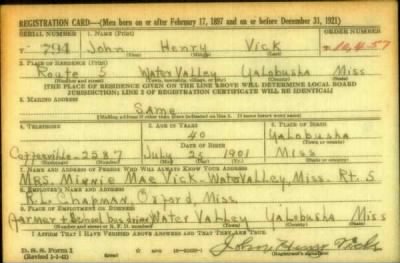 REGISTRATION CARD—(Men born on or after February 17, 1897 and on or before December 31, 1921)
SERIAL NUMBER 1. NAME (Print) ORDER NUMBER
T- 794 John Henry Vick 10,457
(First) (Middle) (Last)
2. PLACE OF RESIDENCE (Print)
Route 5 Water Valley Yalobusha Miss
(Number and street) (Town, township, village, or city) (County) (State)
[THE PLACE OF RESIDENCE GIVEN ON THE LINE ABOVE WILL DETERMINE LOCAL BOARD
JURISDICTION; LINE 2 OF REGISTRATION CERTIFICATE WILL BE IDENTICAL]
3. MAILING ADDRESS
SAME
[Mailing address if other than place indicated on line 2. If same insert word same]
4. TELEPHONE 5. AGE IN YEARS 6. PLACE OF BIRTH
40 Yalobusha
DATE OF BIRTH (Town or county)
Coffeeville- 2587 July 2 1901 Miss
(Exchange) (Number) (Mo.) (Day) (Yr.) (State or country)
7. NAME AND ADDRESS OF PERSON WHO WILL ALWAYS KNOW YOUR ADDRESS
Mrs. Minnie Mae Vick- Water Valley, Miss- Rt. 5
8. EMPLOYER'S NAME AND ADDRESS
R. L. Chapman, Oxford, Miss
9. PLACE OF EMPLOYMENT OR BUSINESS
Farmer + School bus driver Water Valley Yalobusha Miss
(Number and street or R. F. D. number) (Town) (County) (State)
I AFFIRM THAT I HAVE VERIFIED ABOVE ANSWERS AND THAT THEY ARE TRUE.
John Henry Vick
D. S. S. Form 1
(Registrant's signature)